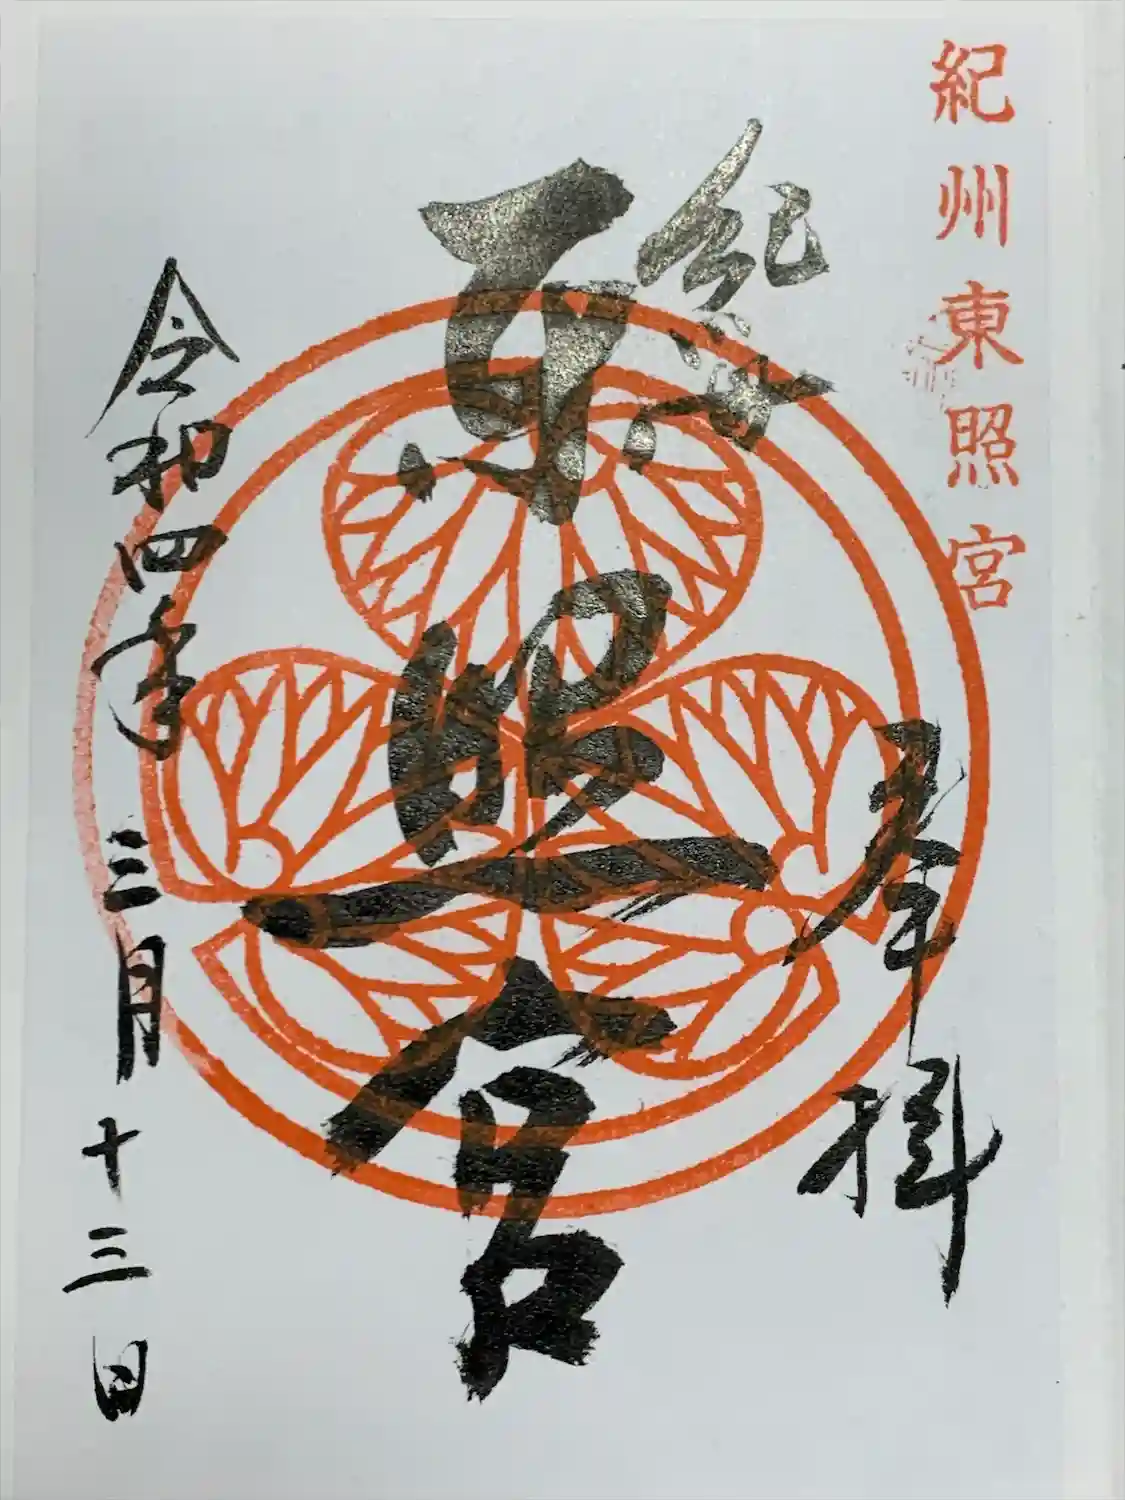 紀州東照宮
奉拝
紀州
東照宮
令和四年三月十三日